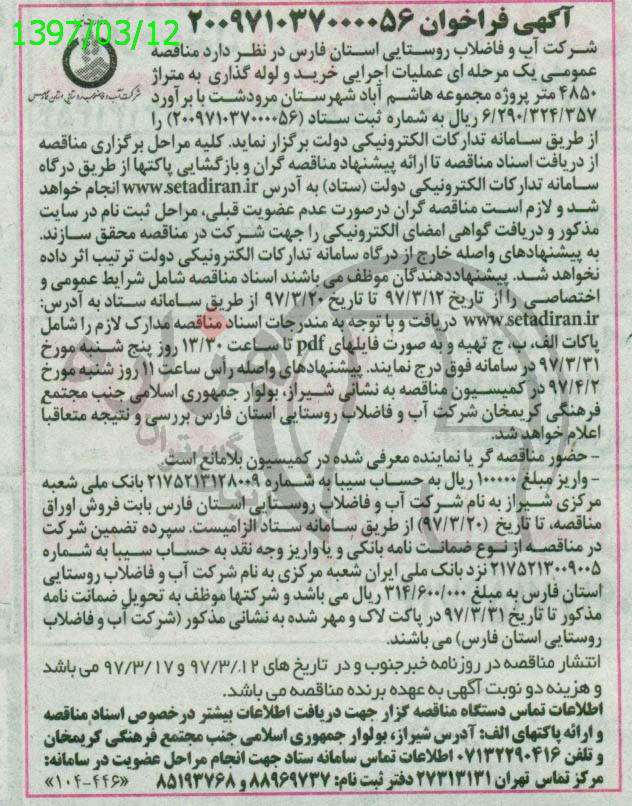 آگهی فراخوان ۲۰۰۹۷۱۰۳۷۰۰۰۰۵۶
1397/03/12
شرکت آب و فاضلاب روستایی استان فارس
شرکت آب و فاضلاب روستایی استان فارس در نظر دارد مناقصه
عمومی یک مرحله ای عملیات اجرایی خرید و لوله گذاری به متراژ
۴۸۵۰ متر پروژه مجموعه هاشم آباد شهرستان مرودشت با برآورد
۶/۲۹۰/۳۲۴/۳۵۷ ریال به شماره ثبت ستاد (۲۰۰۹۷۱۰۳۷۰۰۰۰۵۶) را
از طریق سامانه تدارکات الکترونیکی دولت برگزار نماید. کلیه مراحل برگزاری مناقصه
از دریافت اسناد مناقصه تا ارائه پیشنهاد مناقصه گران و بازگشایی پاکتها از طریق درگاه
سامانه تدارکات الکترونیکی دولت (ستاد) به آدرس www.setadiran.ir انجام خواهد
شد و لازم است مناقصه گران درصورت عدم عضویت قبلی، مراحل ثبت نام در سایت
مذکور و دریافت گواهی امضای الکترونیکی را جهت شرکت در مناقصه محقق سازند.
به پیشنهادهای واصله خارج از درگاه سامانه تدارکات الکترونیکی دولت ترتیب اثر داده
نخواهد شد. پیشنهاددهندگان موظف می باشند اسناد مناقصه شامل شرایط عمومی و
اختصاصی را از تاریخ ۹۷/۳/۱۲ تا تاریخ ۹۷/۳/۲۰ از طریق سامانه ستاد به آدرس:
www.setadiran.ir دریافت و با توجه به مندرجات اسناد مناقصه مدارک لازم را شامل
پاکات الف، ب، ج تهیه و به صورت فایلهای pdf تا ساعت ۱۳/۳۰ روز پنج شنبه مورخ
۹۷/۳/۳۱ در سامانه فوق درج نمایند. پیشنهادهای واصله رأس ساعت ۱۱ روز شنبه مورخ
۹۷/۴/۲ در کمیسیون مناقصه به نشانی شیراز، بولوار جمهوری اسلامی جنب مجتمع
فرهنگی کریمخان شرکت آب و فاضلاب روستایی استان فارس بررسی و نتیجه متعاقبا
اعلام خواهد شد.
- حضور مناقصه گر یا نماینده معرفی شده در کمیسیون بلامانع است
- واریز مبلغ ۱۰۰۰۰۰ ریال به حساب سیبا به شماره ۲۱۷۵۲۱۳۱۲۸۰۰۹ بانک ملی شعبه
مرکزی شیراز به نام شرکت آب و فاضلاب روستایی استان فارس بابت فروش اوراق
مناقصه، تا تاریخ (۹۷/۳/۲۰) از طریق سامانه ستاد الزامیست. سپرده تضمین شرکت
در مناقصه از نوع ضمانت نامه بانکی و یا واریز وجه نقد به حساب سیبا به شماره
۲۱۷۵۲۱۳۰۰۹۰۰۵ نزد بانک ملی ایران شعبه مرکزی به نام شرکت آب و فاضلاب روستایی
استان فارس به مبلغ ۳۱۴/۶۰۰/۰۰۰ ریال می باشد و شرکتها موظف به تحویل ضمانت نامه
مذکور تا تاریخ ۹۷/۳/۳۱ در پاکت لاک و مهر شده به نشانی مذکور (شرکت آب و فاضلاب
روستایی استان فارس) می باشند.
انتشار مناقصه در روزنامه خبرجنوب و در تاریخ های ۹۷/۳/۱۲ و ۹۷/۳/۱۷ می باشد
و هزینه دو نوبت آگهی به عهده برنده مناقصه می باشد.
اطلاعات تماس دستگاه مناقصه گزار جهت دریافت اطلاعات بیشتر درخصوص اسناد مناقصه
و ارائه پاکتهای الف: آدرس شیراز، بولوار جمهوری اسلامی جنب مجتمع فرهنگی کریمخان
و تلفن ۰۷۱۳۲۲۹۰۴۱۶ اطلاعات تماس سامانه ستاد جهت انجام مراحل عضویت در سامانه:
مرکز تماس تهران ۲۷۳۱۳۱۳۱ دفتر ثبت نام: ۸۸۹۶۹۷۳۷ و ۸۵۱۹۳۷۶۸ «۱۰۴-۴۴۶»